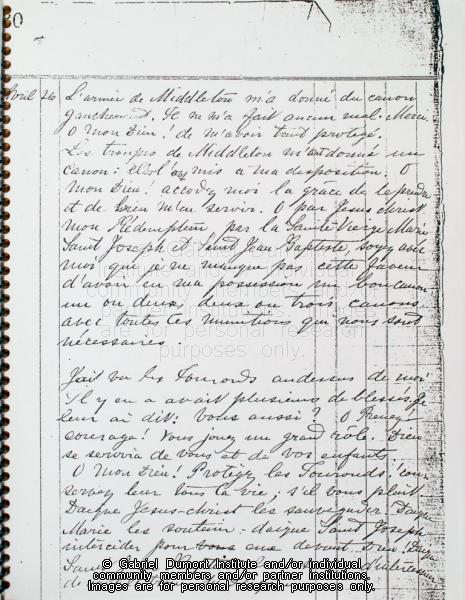 30
Avril 26 L'armée de Middleton m'a donné du canon
gauchement. Il ne m'a fait aucun mal. Merci
O mon Dieu! de m'avoir tant protégé.
Les troupes de Middleton m'ont donné un
canon: elles l'ont mis à ma disposition. O
mon Dieu! accordez moi la grâce de le prendre
et de bien m'en servir. O par Jésus christ
mon Rédempteur per la Sainte Vierge Marie
Saint Joseph et Saint Jean Baptiste, soyez avec
moi que je ne manque pas cette faveur
d'avoir en ma possession un bon canon
un ou deux, deux ou trois canons
avec toutes les munitions qui nous sont
nécessaires.
J'ai vu les Touronds audessus de moi
Il y en avait plusieurs de blessés. Je
leur ai dit: Vous aussi? O Prenez
courage! Vous jouez un grand rôle. Dieu
se servira de vous et de vos enfants.
O Mon Dieu! Protégez les Touronds! Con
servez leur tous la vie; s'il vous plait
Daigne Jésus-christ les sauvegarder. Daigne
Marie les soutenir: daigne Saint Joseph
intercéder pour vous eux devant Dieu!
© Gabriel Dumont Institute and/or individual
community members and/or partner institutions.
Images are for personal research purposes only.